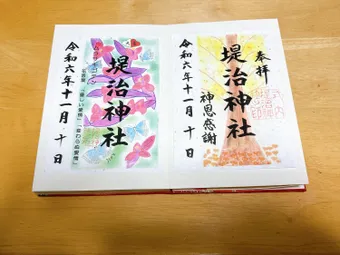 奉拝
堤治神社
神恩感謝
令和六年十一月十日
堤治神社
令和六年十一月十日